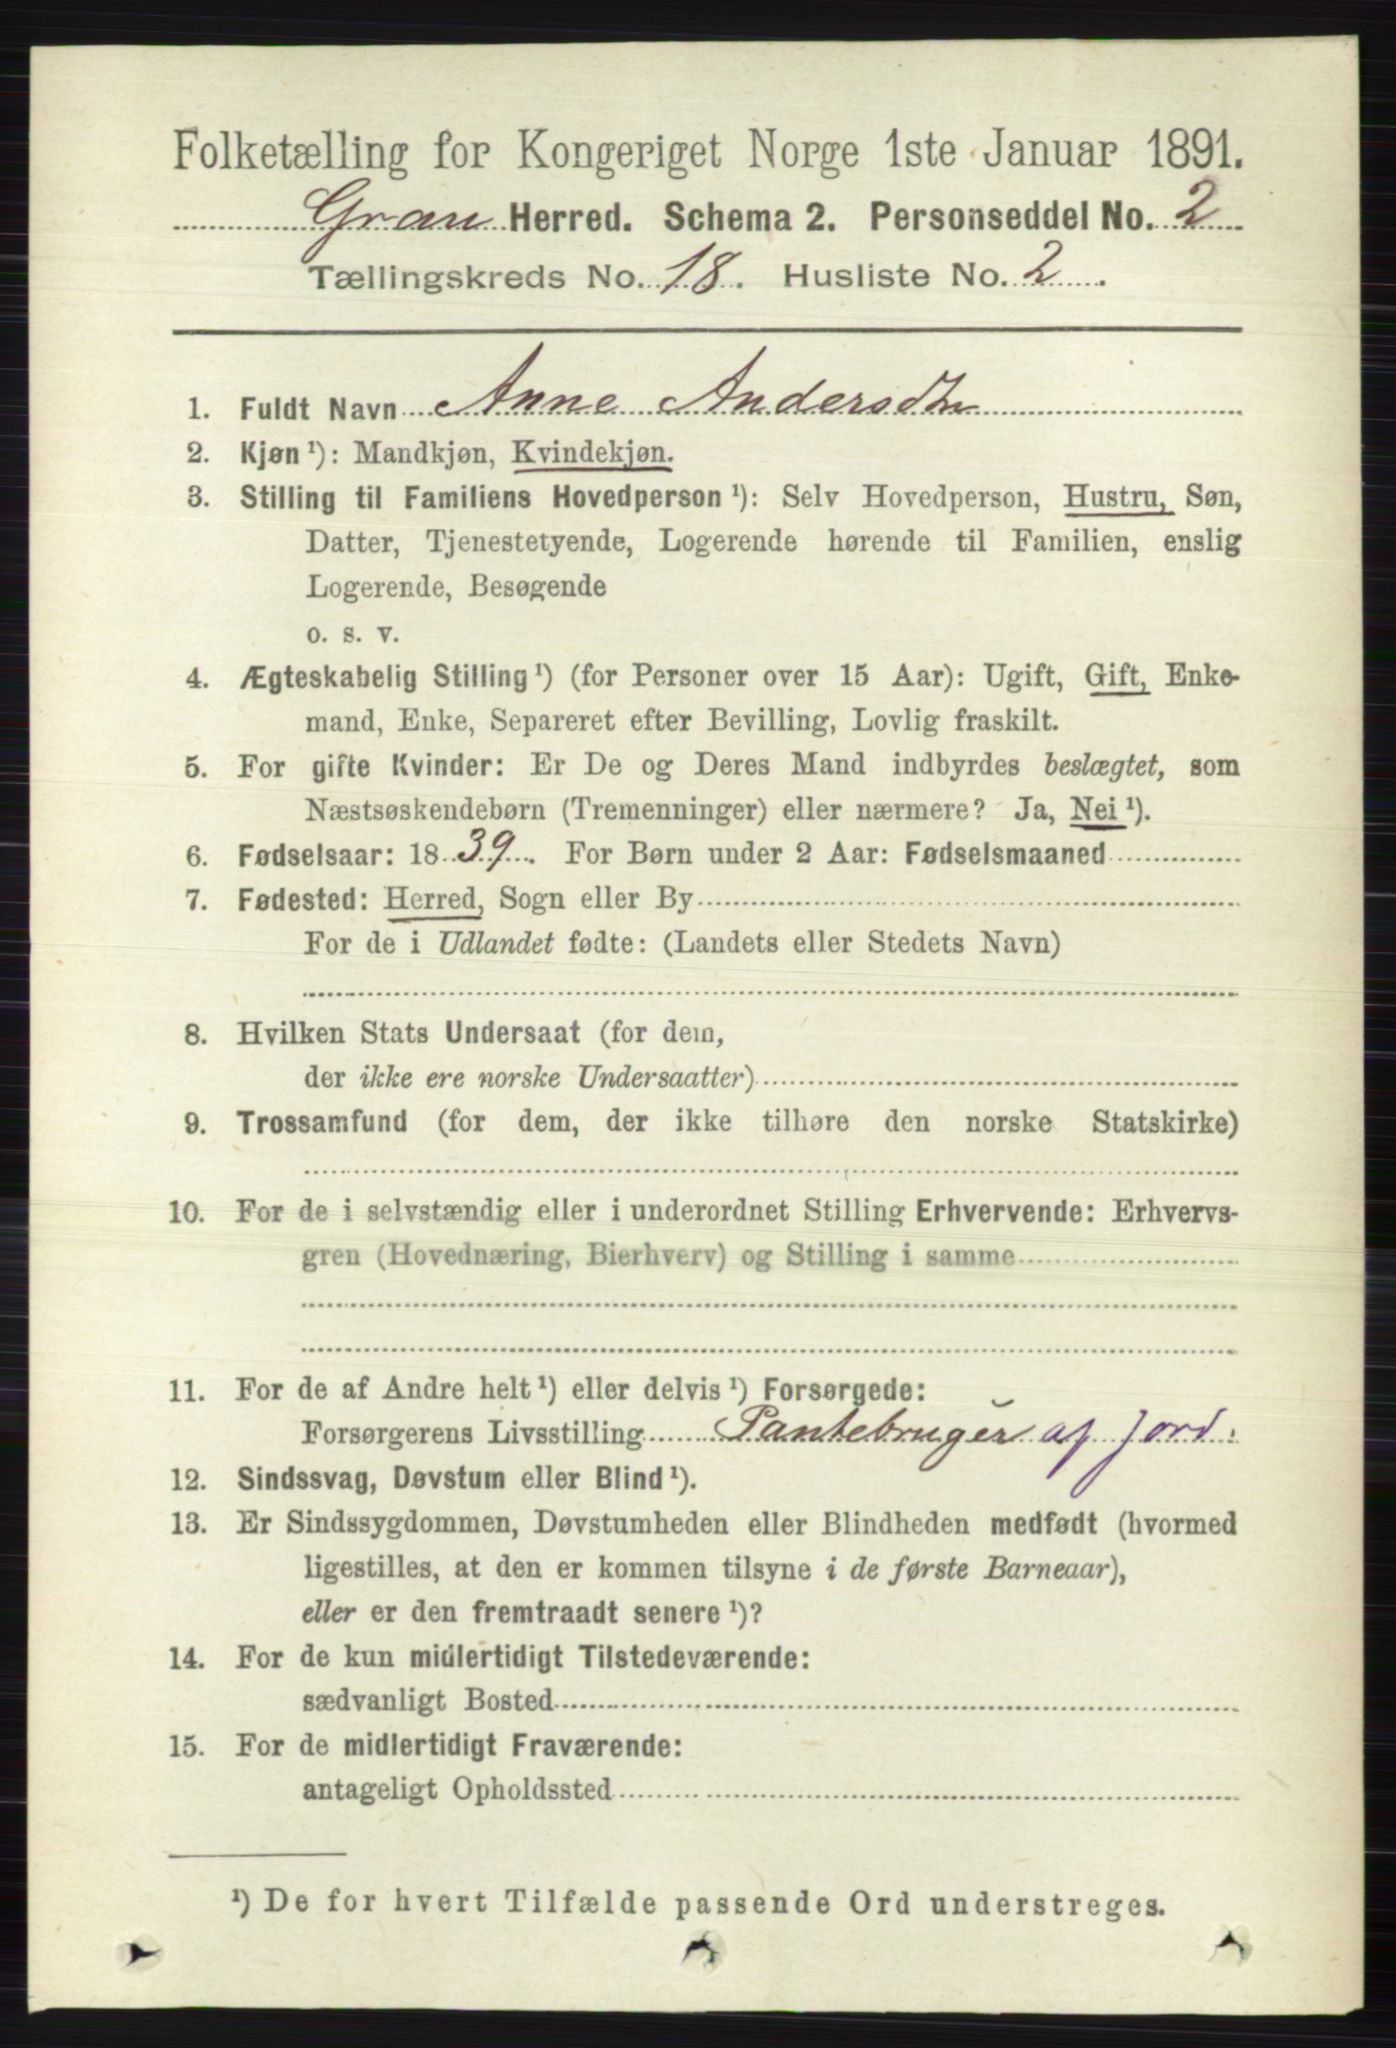 Folketælling for Kongeriget Norge 1ste Januar 1891.
Gran Herred. Schema 2. Personseddel No. 2
Tællingskreds No. 18. Husliste No. 2.
1. Fuldt Navn Anne Andersdtr
2. Kjøn ¹): Mandkjøn, Kvindekjøn.
3. Stilling til Familiens Hovedperson ¹): Selv Hovedperson, Hustru, Søn,
Datter, Tjenestetyende, Logerende hørende til Familien, enslig
Logerende, Besøgende
o. s. v.
4. Ægteskabelig Stilling ¹) (for Personer over 15 Aar): Ugift, Gift, Enke-
mand, Enke, Separeret efter Bevilling, Lovlig fraskilt.
5. For gifte Kvinder: Er De og Deres Mand indbyrdes beslægtet, som
Næstsøskendebørn (Tremenninger) eller nærmere? Ja, Nei ¹).
6. Fødselsaar: 1839. For Børn under 2 Aar: Fødselsmaaned
7. Fødested: Herred, Sogn eller By
For de i Udlandet fødte: (Landets eller Stedets Navn)
8. Hvilken Stats Undersaat (for dem,
der ikke ere norske Undersaatter)
9. Trossamfund (for dem, der ikke tilhøre den norske Statskirke)
10. For de i selvstændig eller i underordnet Stilling Erhvervende: Erhvervs-
gren (Hovednæring, Bierhverv) og Stilling i samme
11. For de af Andre helt ¹) eller delvis ¹) Forsørgede:
Forsørgerens Livsstilling Pantebruger af Jord.
12. Sindssvag, Døvstum eller Blind ¹).
13. Er Sindssygdommen, Døvstumheden eller Blindheden medfødt (hvormed
ligestilles, at den er kommen tilsyne i de første Barneaar),
eller er den fremtraadt senere ¹)?
14. For de kun midlertidigt Tilstedeværende:
sædvanligt Bosted
15. For de midlertidigt Fraværende:
antageligt Opholdssted
¹) De for hvert Tilfælde passende Ord understreges.